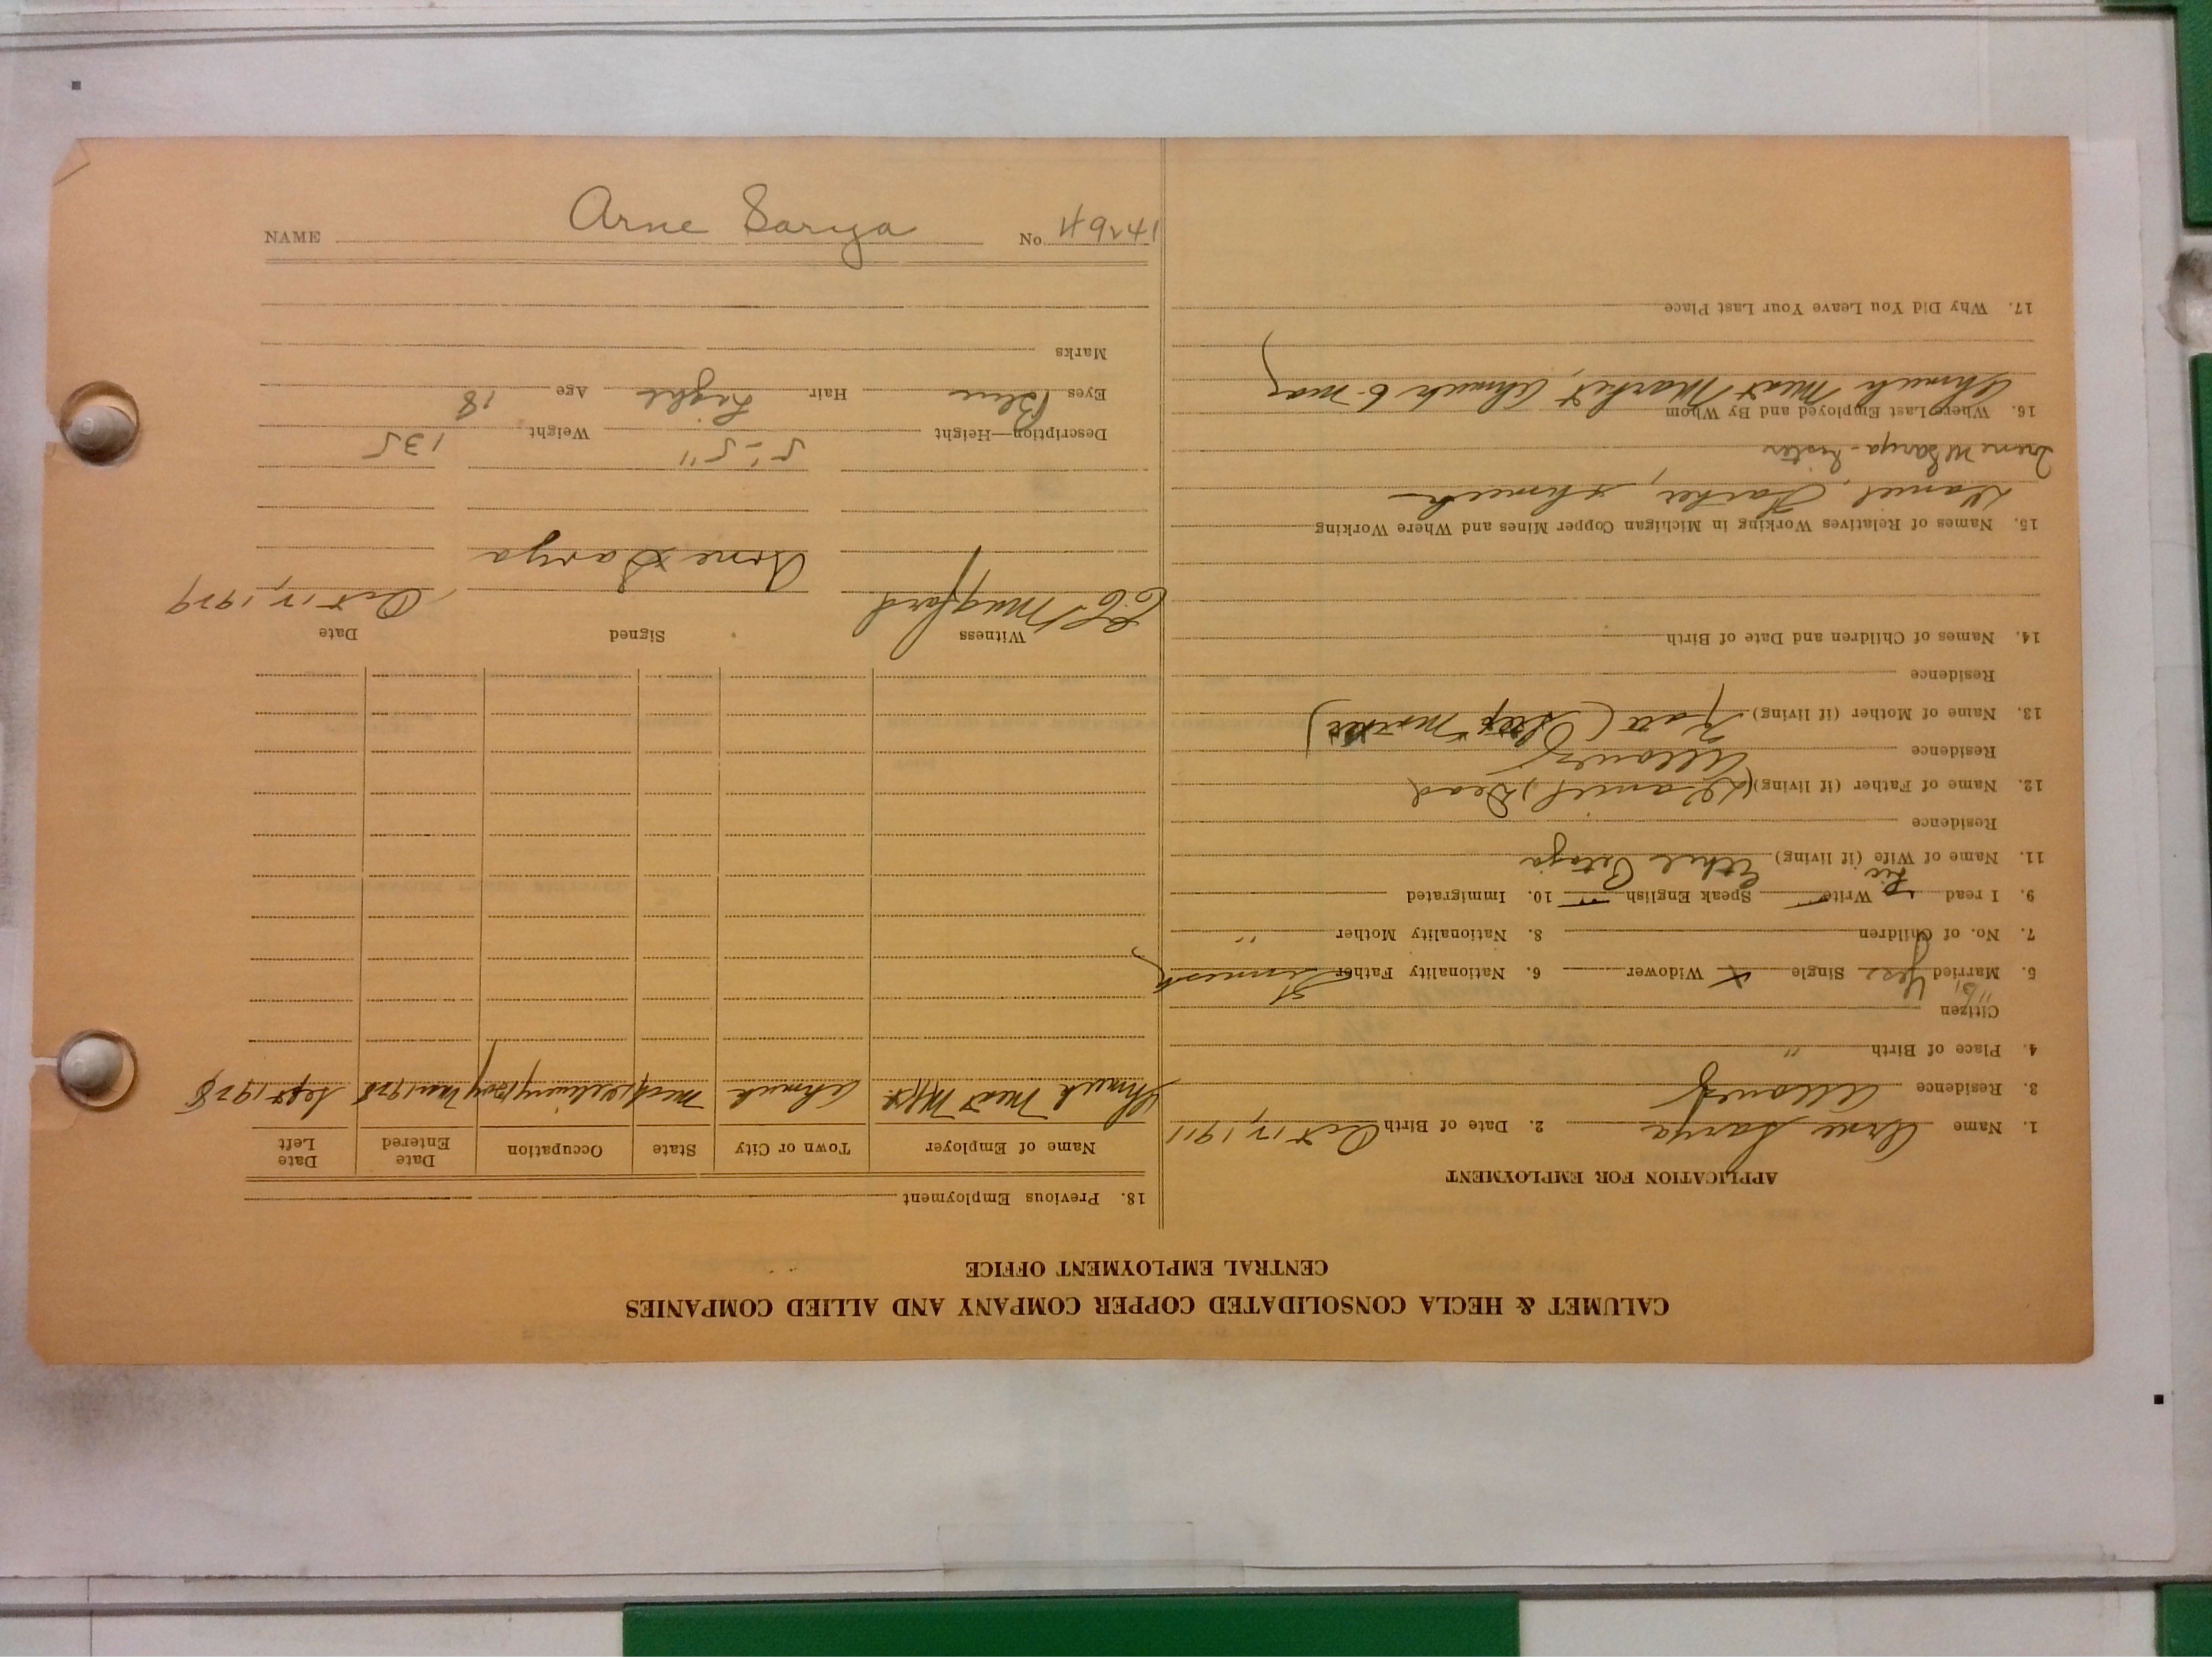 NAME Arne Sarya No. 49241
CALUMET & HECLA CONSOLIDATED COPPER COMPANY AND ALLIED COMPANIES
CENTRAL EMPLOYMENT OFFICE
APPLICATION FOR EMPLOYMENT
1. Name Arne Sarya 2. Date of Birth Oct 12, 1911
3. Residence Allouez
4. Place of Birth "
Citizen
5. Married Yes Single x Widower 6. Nationality Father Finnish
7. No. of Children 8. Nationality Mother "
9. I read Write Speak English 10. Immigrated
11. Name of Wife (if living) Ethel
Residence
12. Name of Father (if living) (Daniel) Dead
Residence Allouez
13. Name of Mother (if living) (Step Mother)
Residence
14. Names of Children and Date of Birth
15. Names of Relatives Working in Michigan Copper Mines and Where Working
Daniel, Father, Ahmeek
Irene M Sarya - Sister
16. Where Last Employed and By Whom
Ahmeek Meat Market, Ahmeek 6 mos
17. Why Did You Leave Your Last Place
18. Previous Employment
Name of Employer Town or City State Occupation Date Entered Date Left
Ahmeek Meat Mkt. Ahmeek Mich Delivery Boy Mar 1928 Sept 1928
Witness Signed Date
Mugford Arne Sarya Oct 12, 1929
Description—Height 5'-5" Weight 135
Eyes Blue Hair Light Age 18
Marks